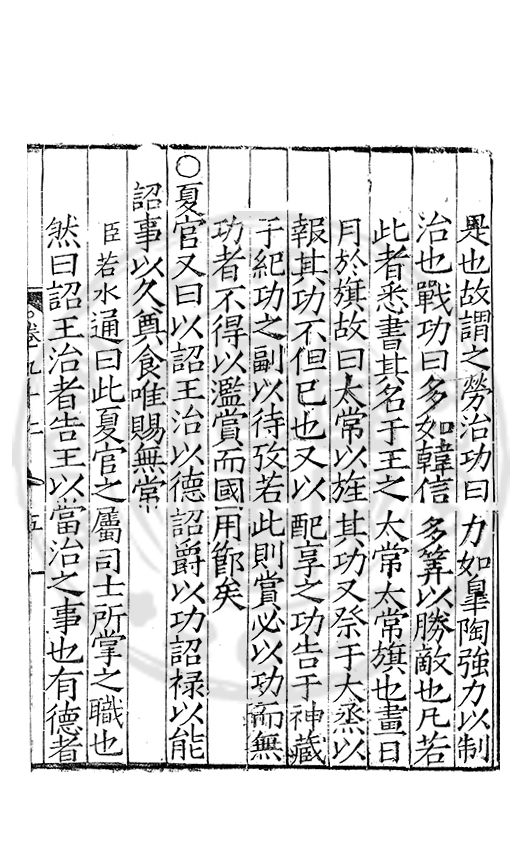 是也故謂之勞治功曰力如臯陶強力以制
治也戰功曰多如韓信多筭以勝敵也凡若
此者悉書其名于王之太常太常旗也畫日
月於旗故曰太常以旌其功又祭于大烝以
報其功不但已也又以配享之功告于神藏
于紀功之副以待攷若此則賞必以功而無
功者不得以濫賞而國用節矣
○夏官又曰以詔王治以德詔爵以功詔祿以能
詔事以久奠食唯賜無常
臣若水通曰此夏官之屬司士所掌之職也
然曰詔王治者告王以當治之事也有德者
卷九十
五